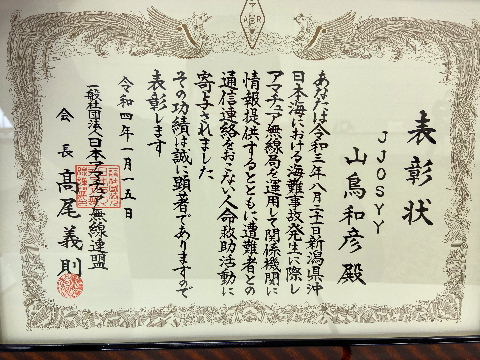 表彰状
JJ0SYY
山鳥和彦殿
あなたは令和三年八月二十一日新潟県沖
日本海における海難事故発生に際し
アマチュア無線局を運用して関係機関に
情報提供するとともに遭難者との
通信連絡をおこない人命救助活動に
寄与されました
その功績は誠に顕著でありますので
表彰します
令和四年一月一五日
一般社団法人日本アマチュア無線連盟
会長 髙尾義則